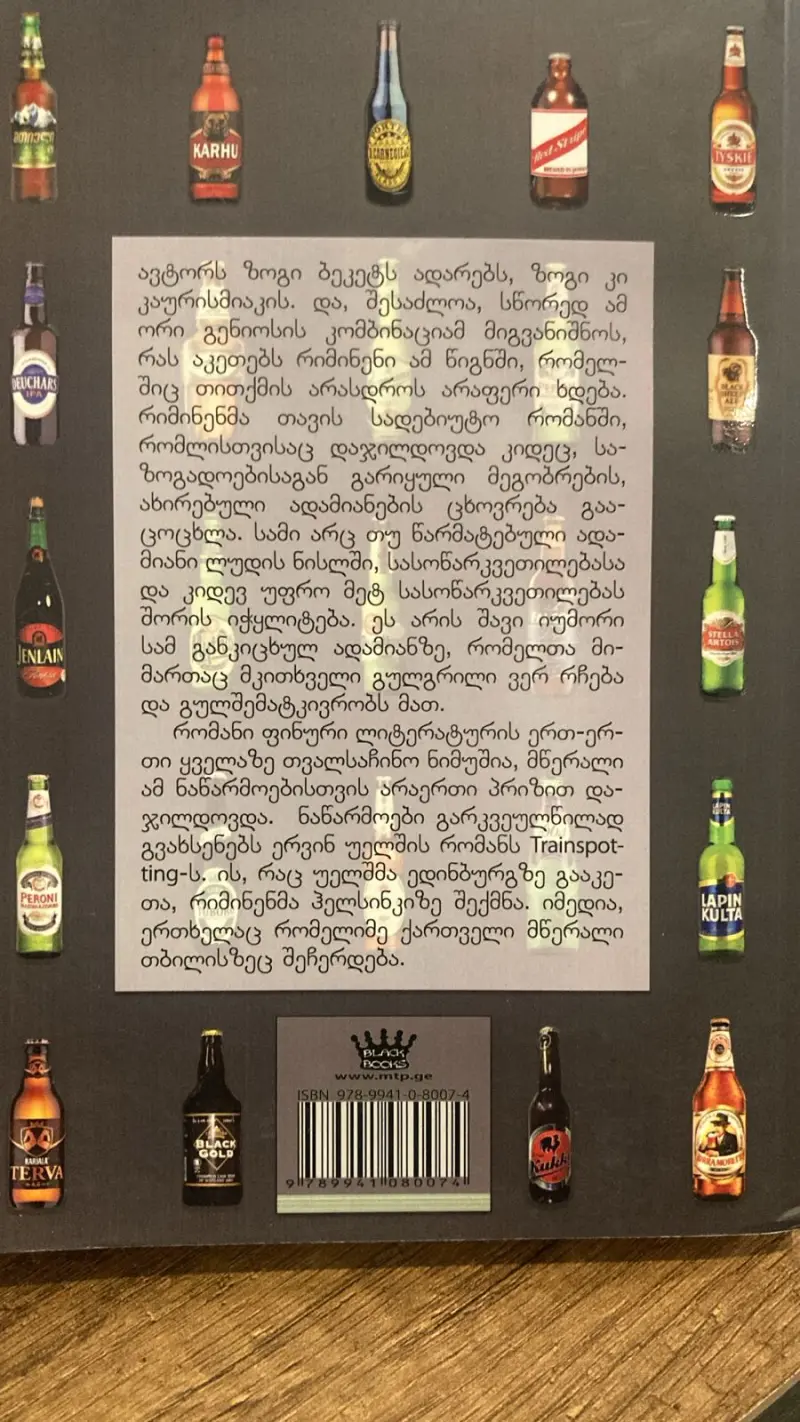 მთიელი
KARHU
PORTER
CARNEGIE
Red Stripe
TYSKIE
DEUCHARS
IPA
BLACK
SHEEP
ALE
ავტორს ზოგი ბეკეტს ადარებს, ზოგი კი
კაურისმიაკის. და, შესაძლოა, სწორედ ამ
ორი გენიოსის კომბინაციამ მიგვანიშნოს,
რას აკეთებს რიმინენი ამ წიგნში, რომელ-
შიც თითქმის არასდროს არაფერი ხდება.
რიმინენმა თავის სადებიუტო რომანში,
რომლისთვისაც დაჯილდოვდა კიდეც, სა-
ზოგადოებისაგან გარიყული მეგობრების,
ახირებული ადამიანების ცხოვრება გაა-
ცოცხლა. სამი არც თუ წარმატებული ადა-
მიანი ლუდის ნისლში, სასოწარკვეთილებასა
და კიდევ უფრო მეტ სასოწარკვეთილებას
შორის იჭყლიტება. ეს არის შავი იუმორი
სამ განკიცხულ ადამიანზე, რომელთა მი-
მართაც მკითხველი გულგრილი ვერ რჩება
და გულშემატკივრობს მათ.
რომანი ფინური ლიტერატურის ერთ-ერ-
თი ყველაზე თვალსაჩინო ნიმუშია, მწერალი
ამ ნაწარმოებისთვის არაერთი პრიზით და-
ჯილდოვდა. ნაწარმოები გარკვეულწილად
გვახსენებს ერვინ უელშის რომანს Trainspot-
ting-ს. ის, რაც უელშმა ედინბურგზე გააკე-
თა, რიმინენმა ჰელსინკიზე შექმნა. იმედია,
ერთხელაც რომელიმე ქართველი მწერალი
თბილისზეც შეჩერდება.
JENLAIN
STELLA
ARTOIS
PERONI
LAPIN
KULTA
KARJALA
TERVA
BLACK
GOLD
BLACK
BOOKS
www.mtp.ge
ISBN 978-9941-0-8007-4
9 789941 080074
Kukko
BIRRA MORETTI